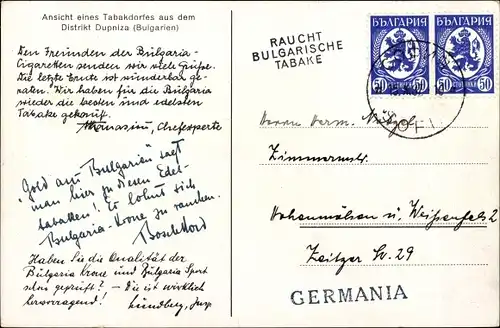 Ansicht eines Tabakdorfes aus dem
Distrikt Dupniza (Bulgarien)
Den Freunden der Bulgaria-
Cigaretten senden wir viele Grüße.
Die letzte Ernte ist wunderbar ge-
raten! Wir haben für die Bulgaria
wieder die besten und edelsten
Tabake gekauft.
Athanasiu, Chefexperte
"Gold aus Bulgarien" sagt
man hier zu diesen Edel-
tabaken! Es lohnt sich
Bulgaria-Krone zu rauchen.
Haben Sie die Qualität der
Bulgaria Krone und Bulgaria Sport
schon geprüft? - Die ist wirklich
hervorragend!
RAUCHT
BULGARISCHE
TABAKE
БЪЛГАРИЯ
50 СТОТИНКИ 50
БЪЛГАРИЯ
50 СТОТИНКИ 50
Herrn Herm.
Zimmermstr.
Hohenmölsen ü. Weißenfels 2
Zeitzer Str. 29
GERMANIA